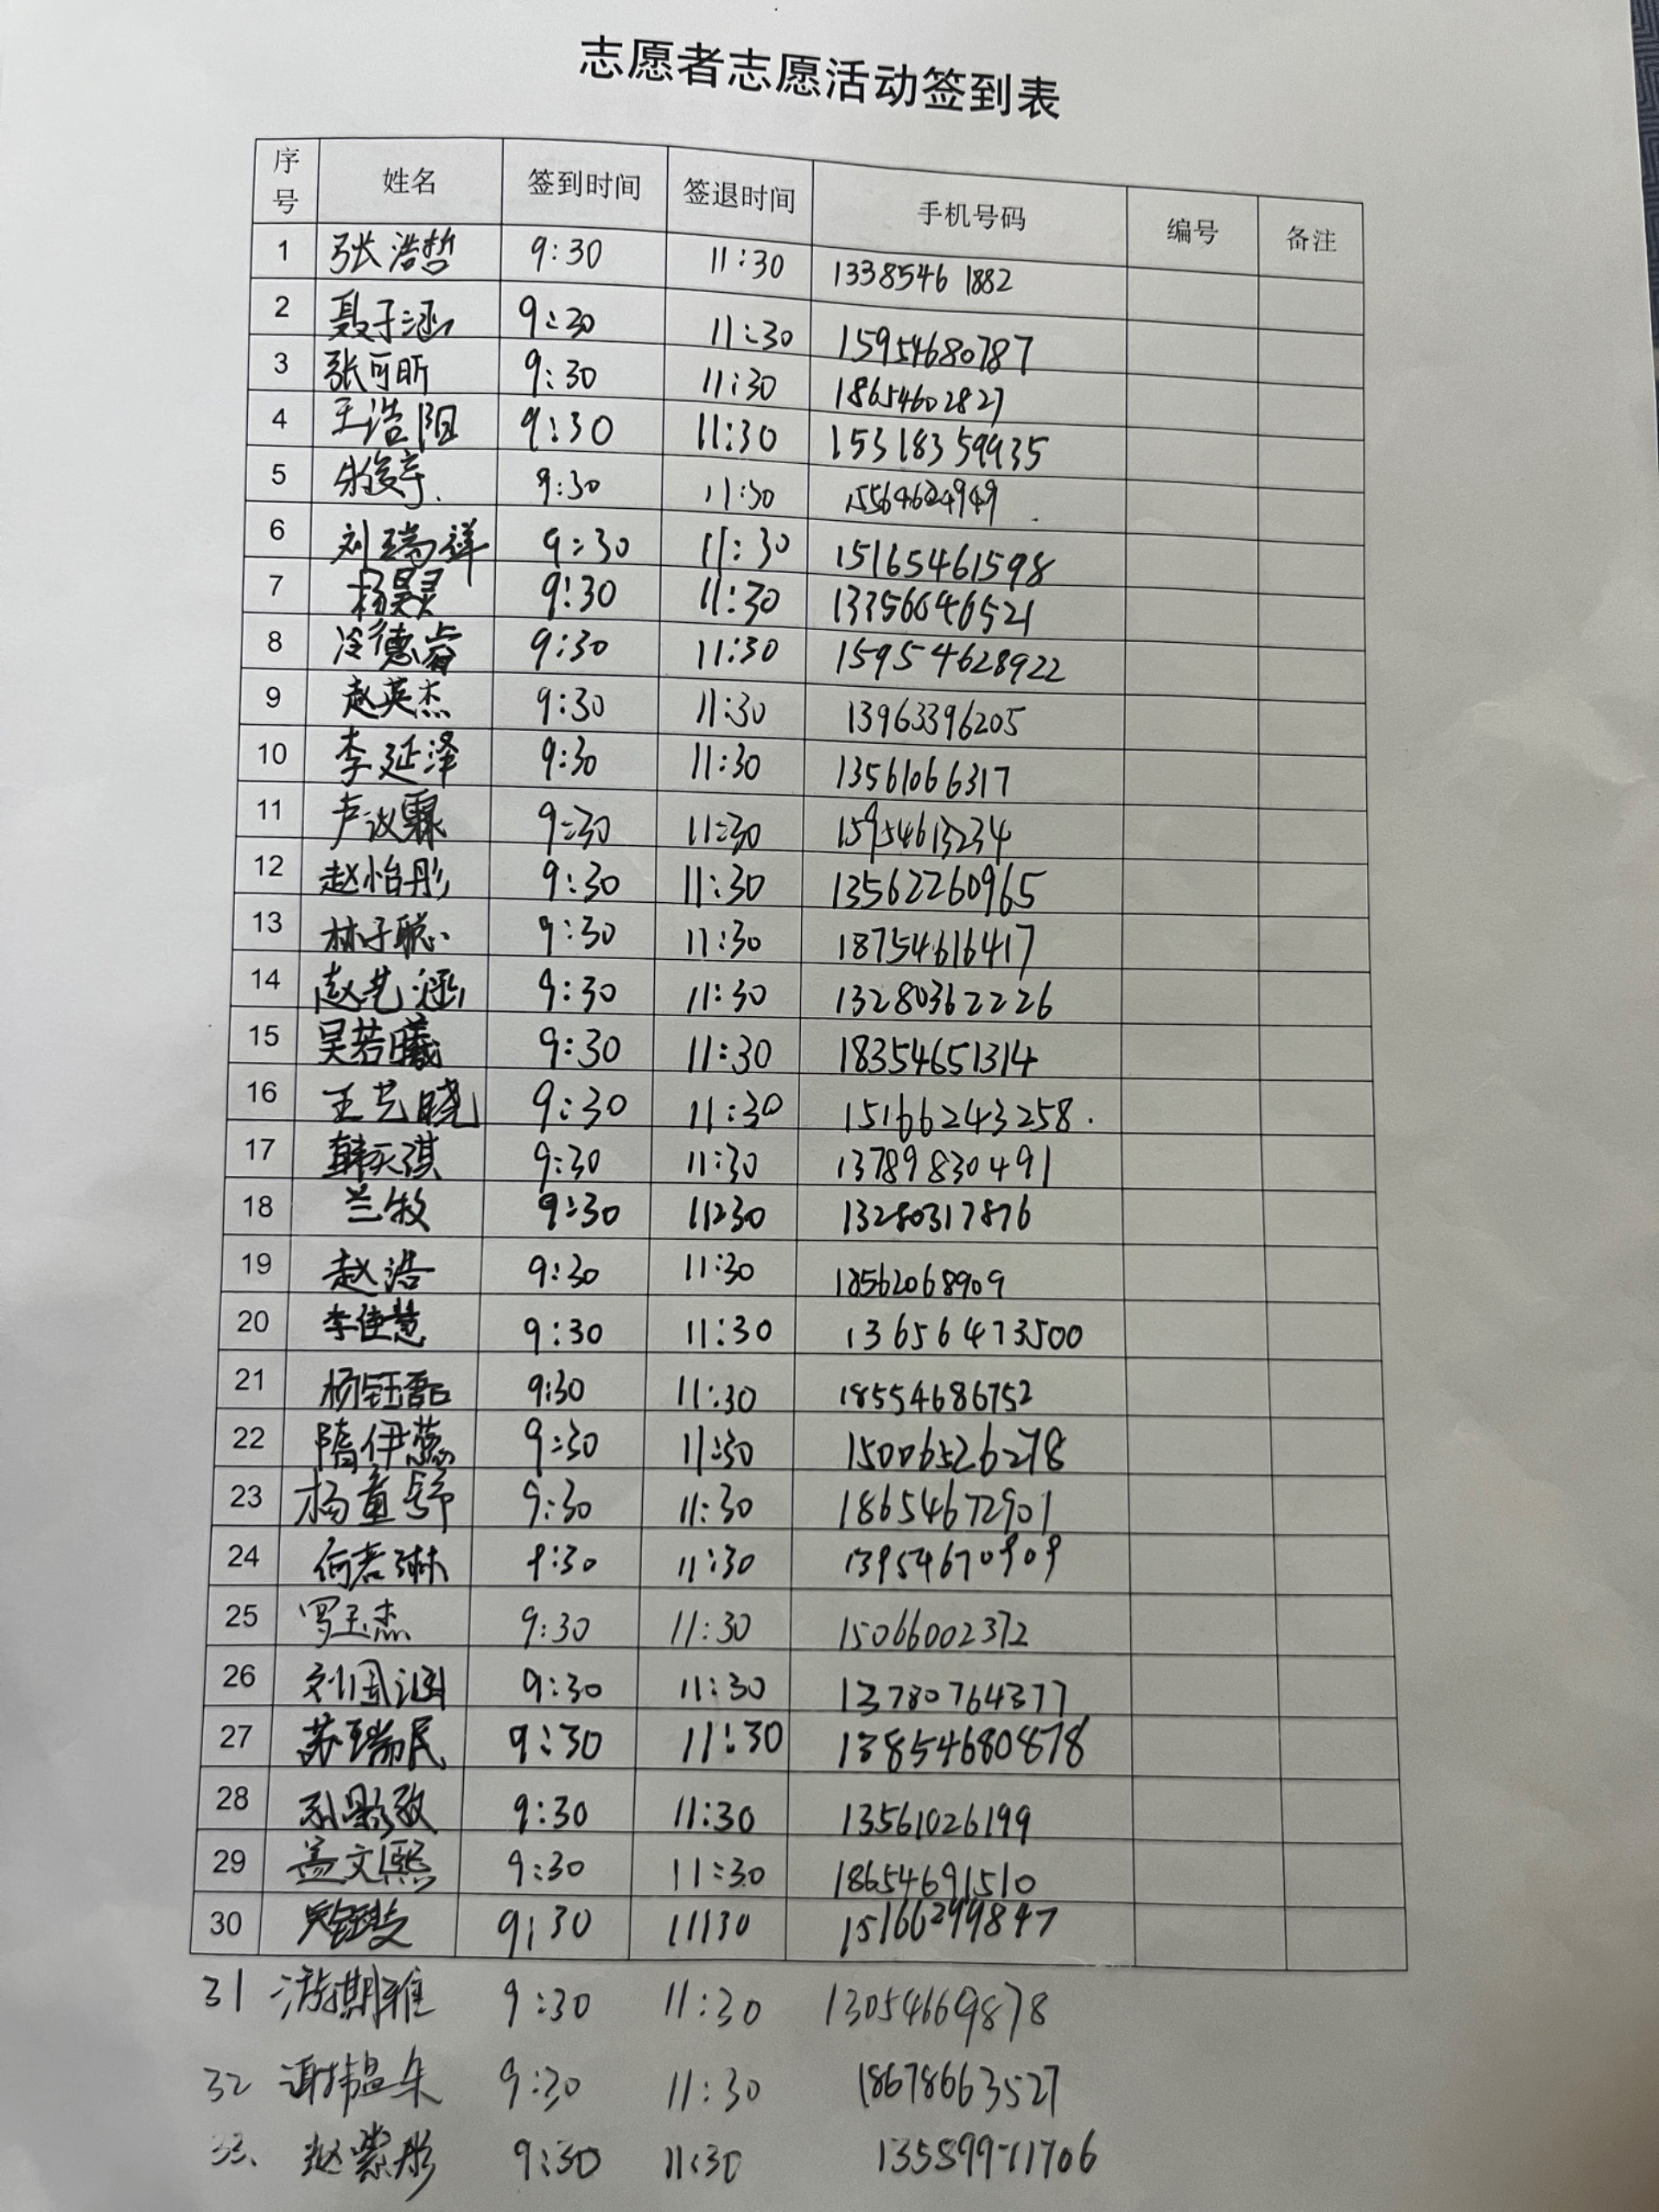 志愿者志愿活动签到表
序号 姓名 签到时间 签退时间 手机号码 编号 备注
1 张浩哲 9:30 11:30 13385461882
2 聂子涵 9:30 11:30 15954680787
3 张可昕 9:30 11:30 18654602827
4 王浩阳 9:30 11:30 15318359935
5 朱俊宇. 9:30 11:30
6 刘瑞祥 9:30 11:30 15165461598
7 杨昊灵 9:30 11:30 13356646521
8 冷德睿 9:30 11:30 15954628922
9 赵英杰 9:30 11:30 13963396205
10 李延泽 9:30 11:30 13561066317
11 卢议霖 9:30 11:30 15954613234
12 赵怡彤 9:30 11:30 13562260965
13 林子聪 9:30 11:30 18754616417
14 赵艺涵 9:30 11:30 13280362226
15 吴若曦 9:30 11:30 18354651314
16 王艺晓 9:30 11:30 15166243258.
17 韩天琪 9:30 11:30 13789830491
18 兰牧 9:30 11:30 13280317876
19 赵浩 9:30 11:30 18562068909
20 李佳慧 9:30 11:30 13656473500
21 杨钰 9:30 11:30 18554686752
22 隋伊蕊 9:30 11:30 15006526278
23 杨童舒 9:30 11:30 18654672901
24 何若琳 9:30 11:30 13954670909
25 罗玉杰 9:30 11:30 15066002372
26 刘国涵 9:30 11:30 13780764377
27 苏瑞民 9:30 11:30 13854680878
28 9:30 11:30 13561026199
29 盖文熙 9:30 11:30 18654691510
30 9:30 11:30 15166299847
31 游期雅 9:30 11:30 13054669878
32 谢韫朱 9:30 11:30 18678663527
33、赵紫彤 9:30 11:30 13589971706